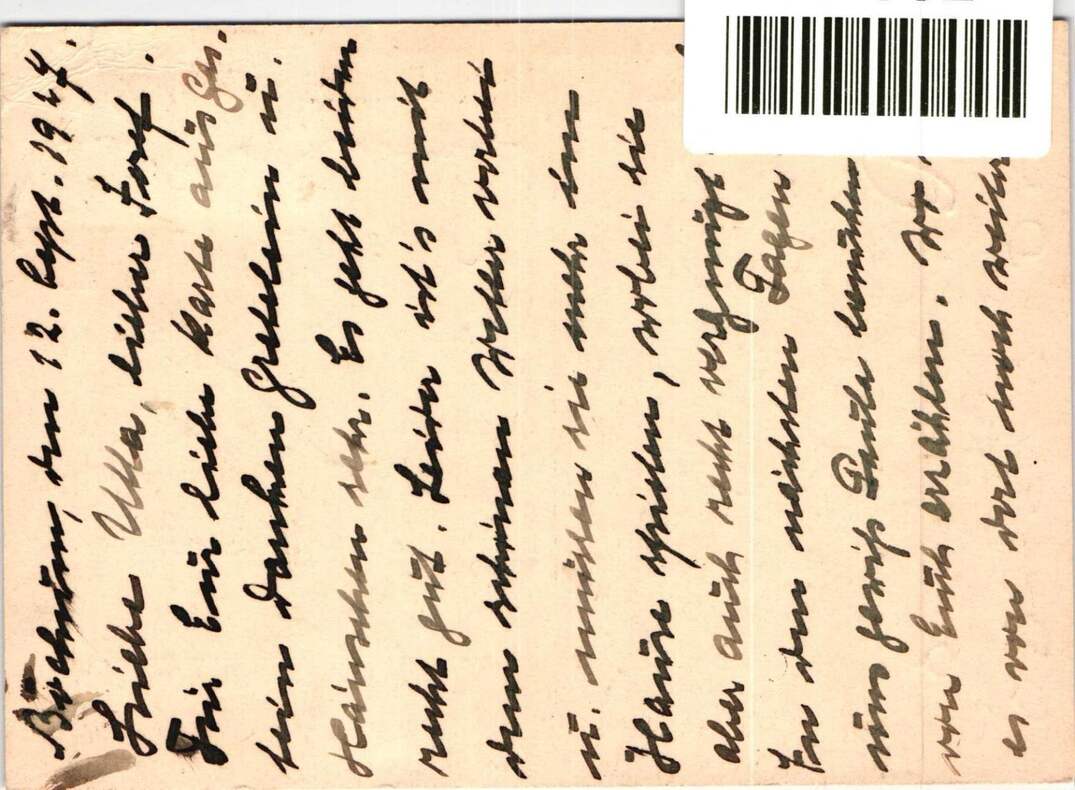 Bochum, den 12. Sept. 1927.
Liebe Utta, lieber Josef.
Für Eure liebe Karte aus
tein danken Gretelein u.
Hänschen sehr. Es geht beiden
recht gut. Leider ist's mit
dem schönen Wetter vorbei
u. müssen sie mehr im
Hause spielen, wobei sie
aber auch recht vergnügt
In den nächsten Tagen
uns gewiß Paula besuchen
von Euch erzählen.
es von dort noch weiter